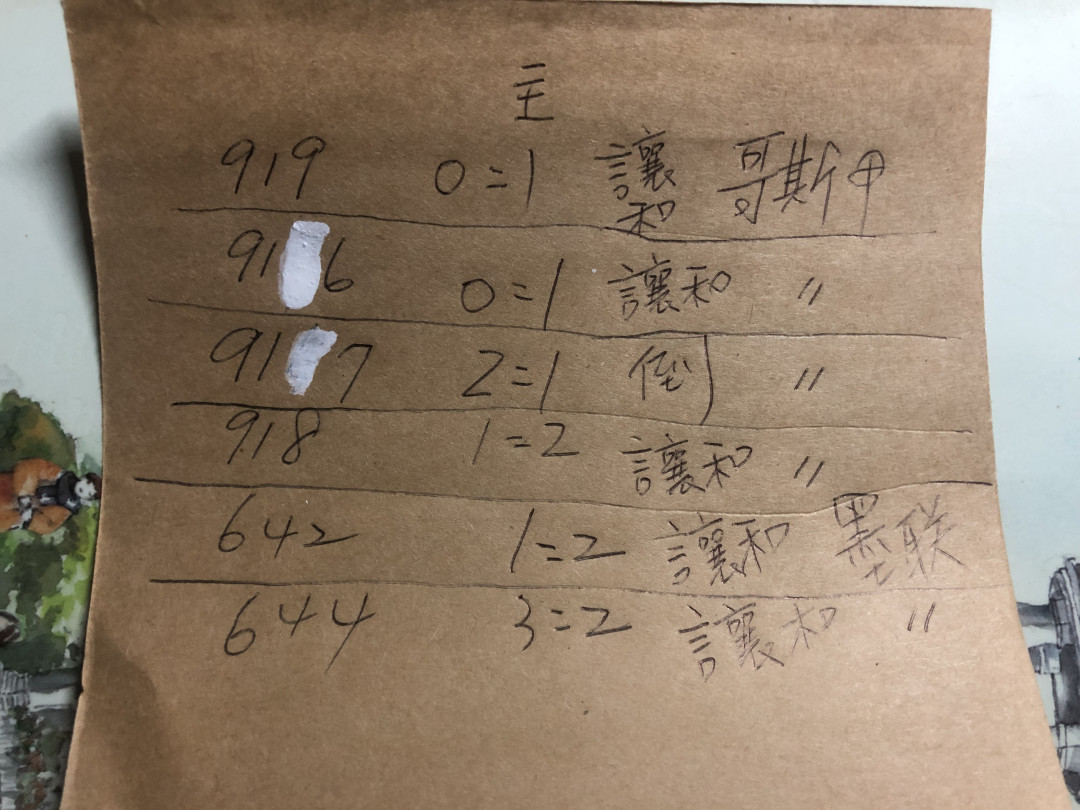 主
919 0=1 讓和 哥斯甲
916 0=1 讓和 〃
917 2=1 倒 〃
918 1=2 讓和 〃
642 1=2 讓和 墨联
644 3=2 讓和 〃